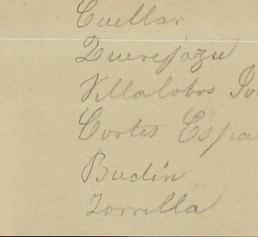 Cuellar
Querejazu
Villalobos Jo
Cortes Espa
Budín
Zorrilla